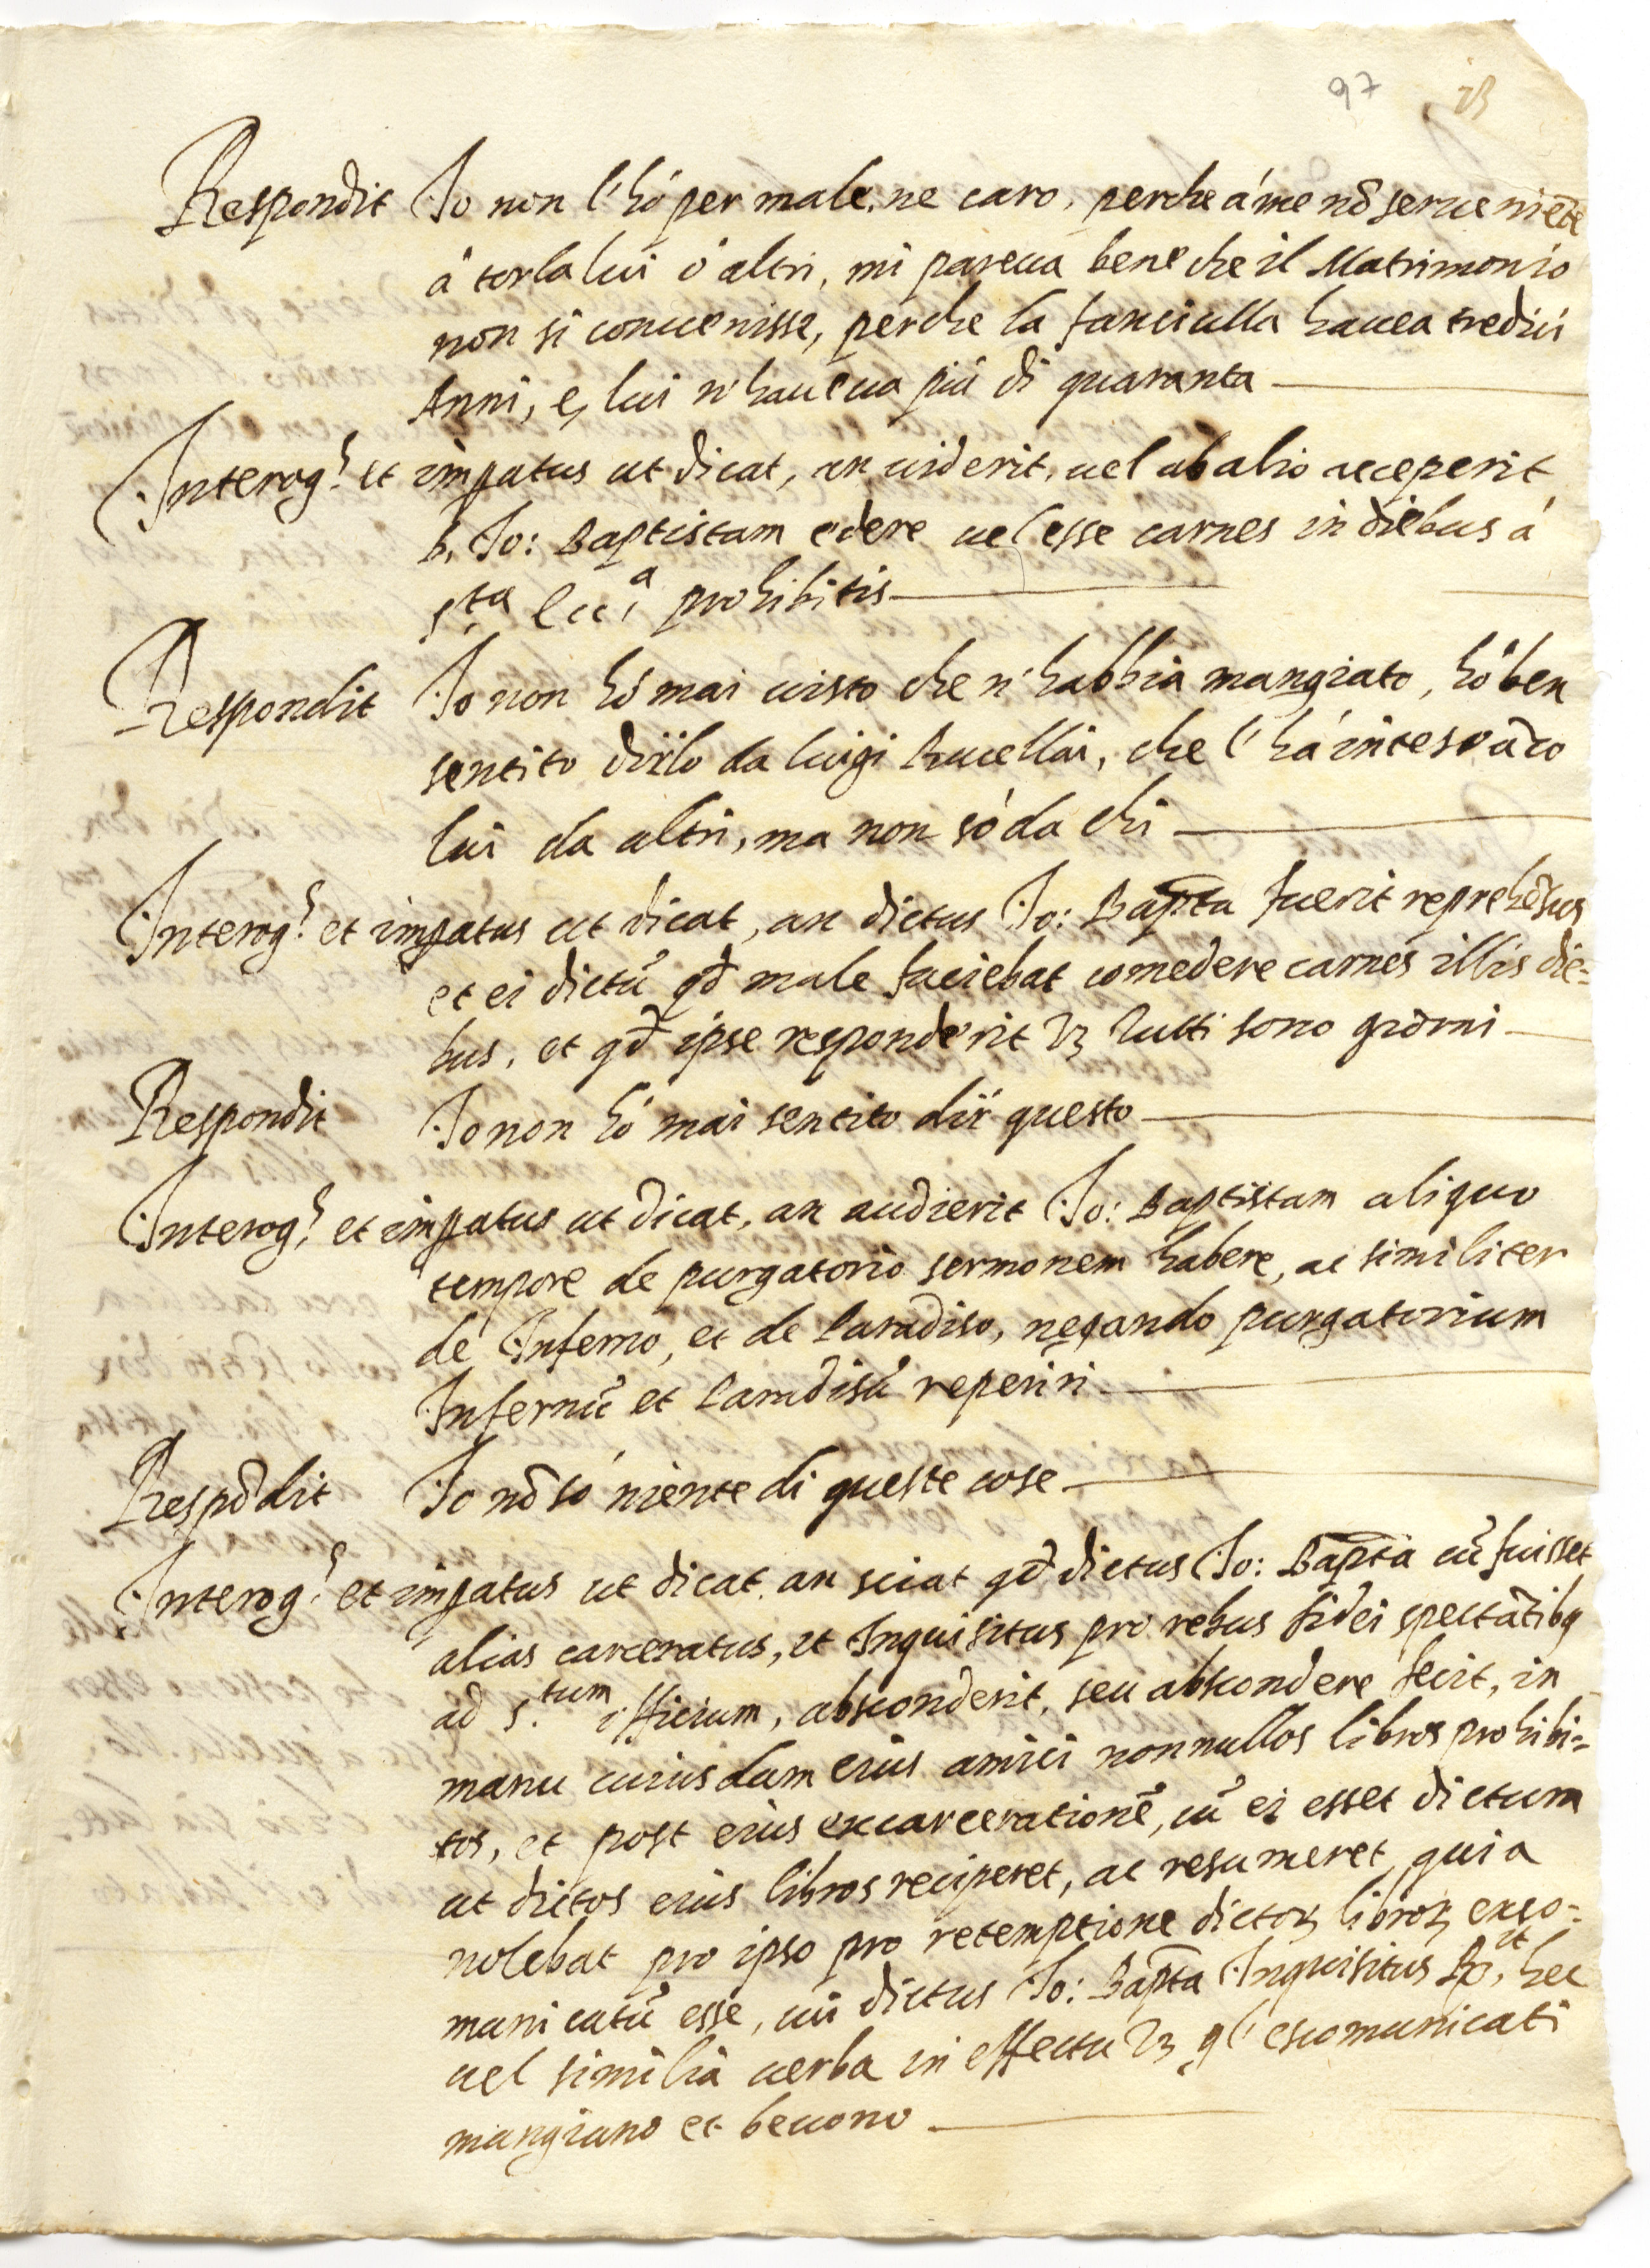 97
Respondit Io non l'hò per male, ne caro, perche à me nō serue niēte
à torla lui ò altri, mi pareua bene che il Matrimonio
non si conuenisse, perche la fanciulla hauea tredici
Anni, e, lui n'haueua più di quaranta
Interog.s et impatus ut dicat, an uiderit, uel ab alio acceperit
d. Io: Baptistam edere uel esse carnes in diebus à
s.ta ecc.a prohibitis
Respondit Io non hò mai uisto che n'habbia mangiato, hò ben
sentito dirlo da luigi Rucellai, che l'hà inteso āco
lui da altri, ma non sò da chi
Interog.s et impatus ut dicat, an dictus Io: Bap̄ta fuerit reprehēsus
et ei dictū qđ male faciebat comedere carnes illis die=
bus, et qđ ipse responderit vz Tutti sono giorni
Respondit Io non hò mai sentito dir questo
Interog.s et impatus ut dicat, an audierit Io: Baptistam aliquo
tempore de purgatorio sermonem habere, ac similiter
de Inferno, et de Paradiso, negando purgatorium
Infernū et Paradisū reperiri
Respōdit Io nō sò niente di queste cose
Interog.s et impatus ut dicat an sciat qđ dictus Io: Bap̄ta cū fuisset
alias carceratus, et Inquisitus pro rebus fidei spectātibq
ad s.tum officium, absconderit, seu abscondere fecit, in
manu cuiusdam eius amici nonnullos libros prohibi=
tos, et post eius excarcerationē, cū ei esset dictum
ut dictos eius libros reciperet, ac resumeret, quia
nolebat pro ipso pro retemptione dictoꝝ libroꝝ exco=
municatū esse, cui dictus Io: Bap̄ta Inquisitus Rꝫ.it, hec
uel similia uerba in effectu vz gl' escomunicati
mangiano et beuono